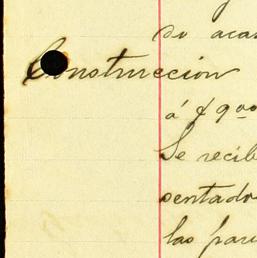 de acas
Construccion
á $900
Se recib
sentado
las par